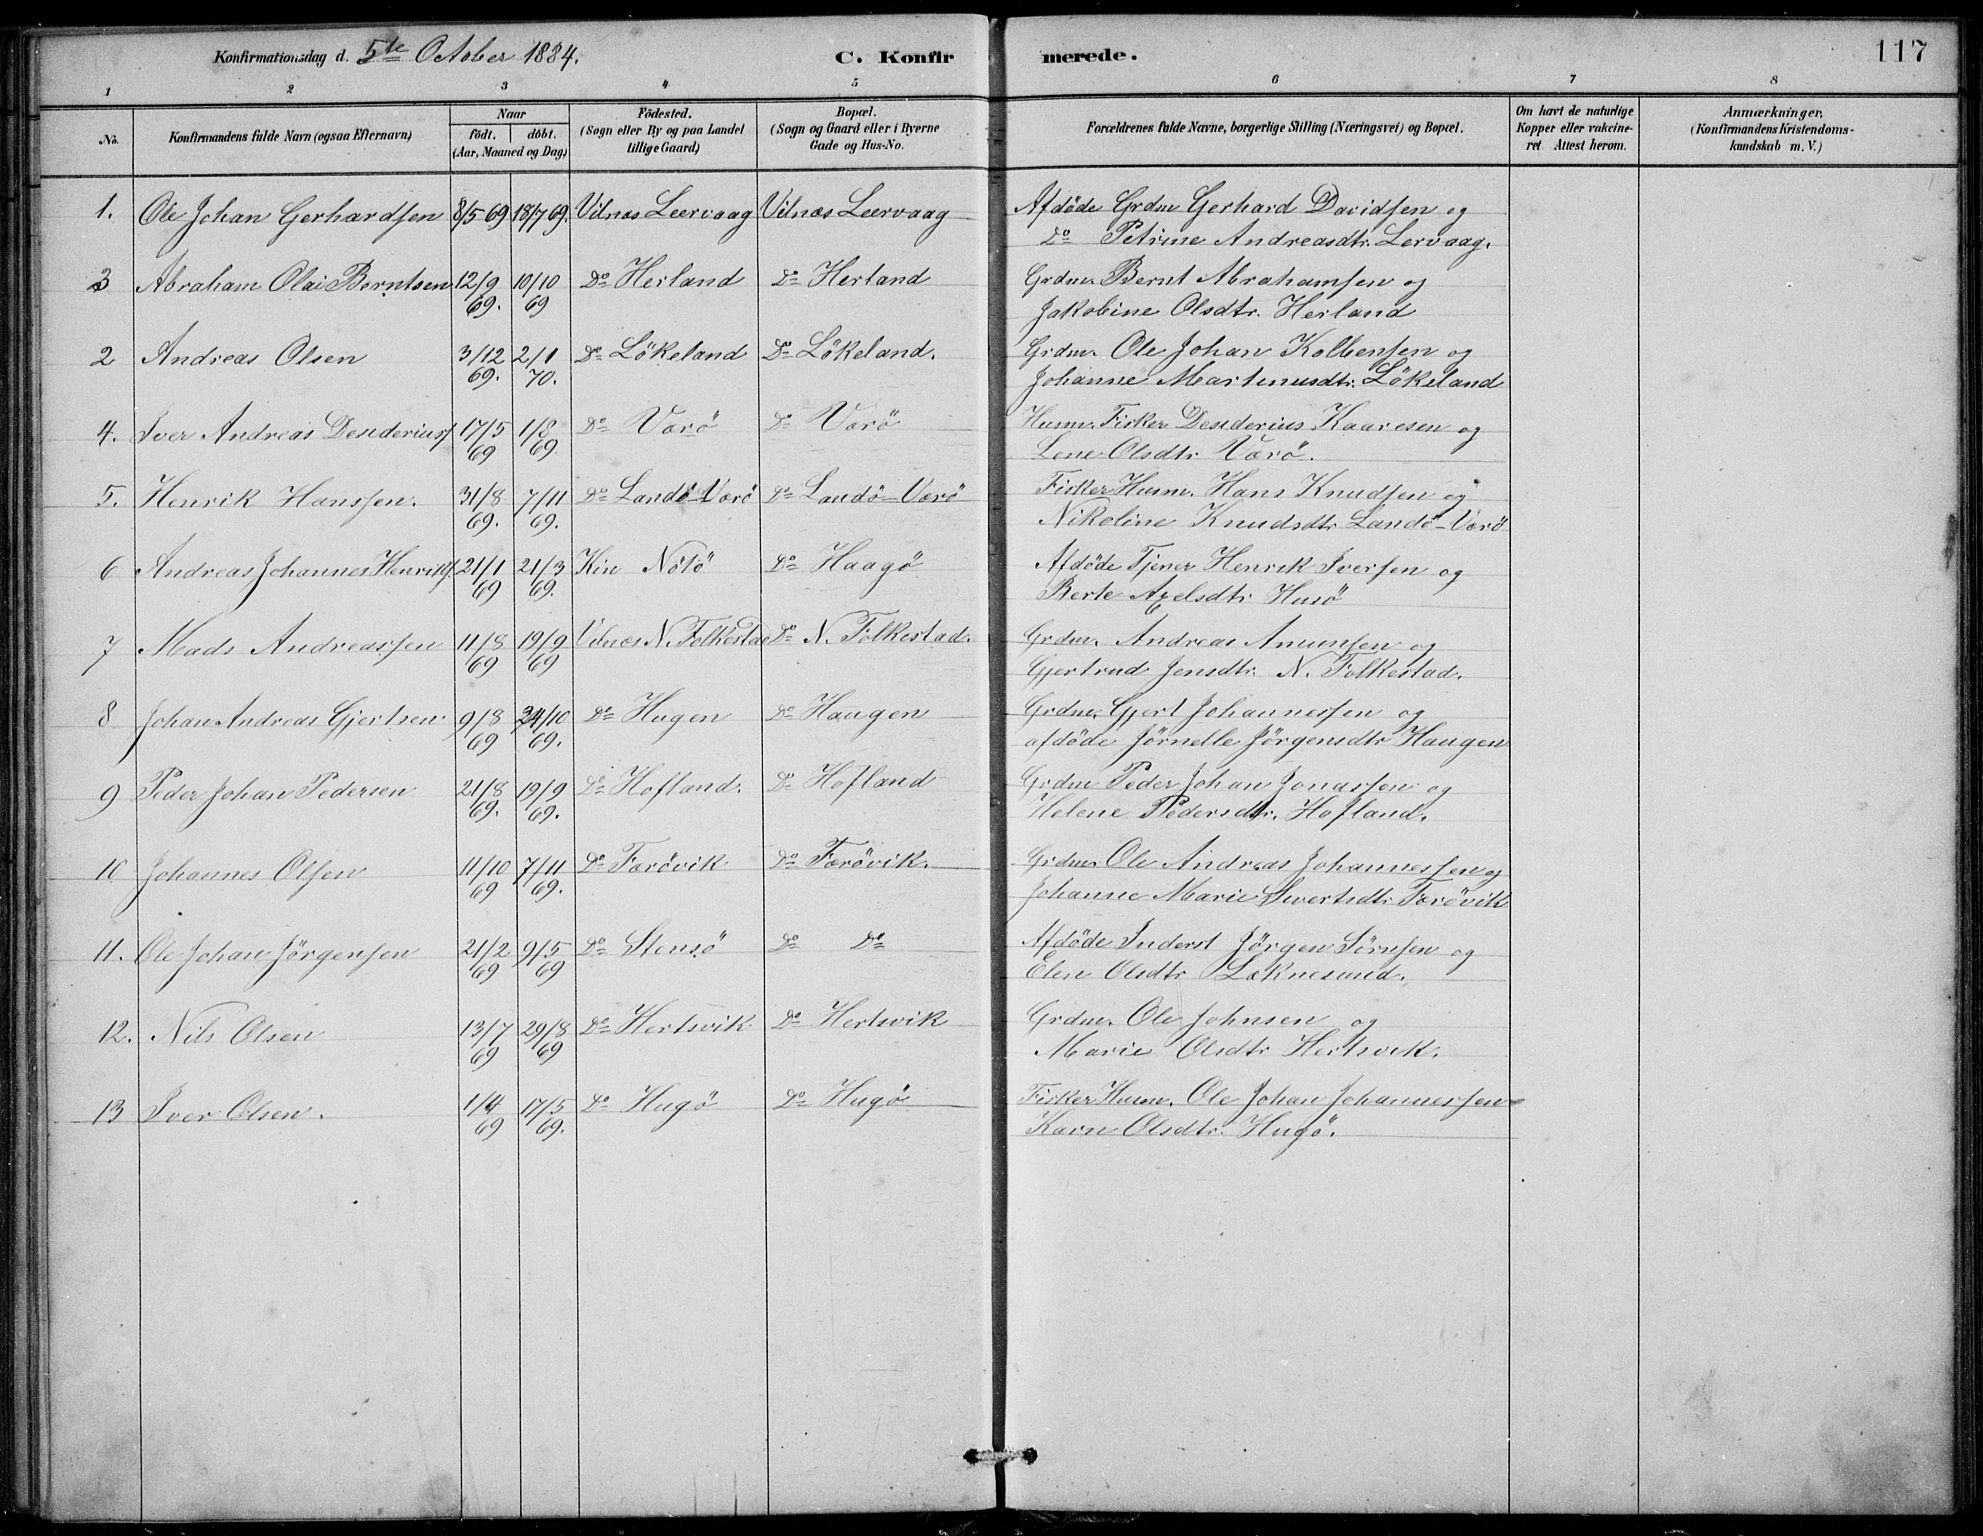 Konfirmationsdag d. 5te October 1884.
C. Konfirmerede.
117
1 2 3 4 5 6 7 8
No.
Konfirmandens fulde Navn (ogsaa Efternavn)
Naar
födt. döbt.
(Aar, Maaned og Dag)
Födested.
(Sogn eller By og paa Landet
tillige Gaard)
Bopæl.
(Sogn og Gaard eller i Byerne
Gade og Hus-No.
Forældrenes fulde Navne, borgerlige Stilling (Næringsvei) og Bopæl.
Om havt de naturlige
Kopper eller vakcine-
ret Attest herom.
Anmærkninger.
(Konfirmandens Kristendoms-
kundskab m. V.)
1. Ole Johan Gerhardsen 8/5 69 18/7 69. Vilnæs Leervaag Vilnæs Leervaag Afdöde Grdm Gerhard Davidsen og
Do Petrine Andreasdtr. Lervaag.
3 Abraham Olai Berntsen 12/9 69. 10/10 69 Do Herland Do Herland Grdm. Bernt Abrahamsen og
Jakobine Olsdtr. Herland
2 Andreas Olsen 3/12 69. 2/1 70. Do Lökeland Do Lökeland. Grdm. Ole Johan Kolbensen og
Johanne Martinusdtr. Lökeland
4. Iver Andreas Desideriusf 17/5 69 1/8 69. Do Værö Do Værö Husm. Fisker Desiderius Kaaresen og
Lene Olsdtr Værö.
5. Henrik Hanssen. 31/8 69. 7/11 69. Do Landö-Værö Do Landö-Værö Fisker Husm. Hans Knudsen og
Nikoline Knudsdtr Landö-Værö
6 Andreas Johannes Henriksf. 21/1 69 21/3 69. Kin Nötö Do Haagö Afdöde Tjener Henrik Iversen og
Berte Axelsdtr Husö
7 Mads Andreassen 11/8 69 19/9 69 Vilnæs N. Folkestad Do N. Folkestad. Grdm. Andreas Amunsen og
Gjertrud Jensdtr. N. Folkestad.
8 Johan Andreas Gjertsen 9/8 69 24/10 69. Do Hugen Do Haugen Grdm. Gjert Johannessen og
afdöde Jörnelle Jörgensdtr Haugen
9 Peder Johan Pedersen 21/8 69. 19/9 69. Do Hofland. Do Hofland Grdm Peder Johan Jonassen og
Helene Pedersdtr. Hofland.
10 Johannes Olsen 11/10 69 7/11 69. Do Færövik Do Færövik. Grdm. Ole Andreas Johannessen og
Johanne Marie Sivertsdtr Færövik
11. Ole Johan Jörgensen 21/2 69 9/5 69 Do Stensö Do Do Afdöde Inderst Jörgen Sörnsen og
Elen Olsdtr Leknesund.
12. Nils Olsen 13/7 69 29/8 69 Do Hertsvik Do Hertsvik Grdm. Ole Johnsen og
Marie Olsdtr Hertsvik.
13 Iver Olsen. 1/4 69 17/5 69. Do Hugö Do Hugö Fisker Husm. Ole Johan Johannessen
Karn Olsdtr. Hugö.